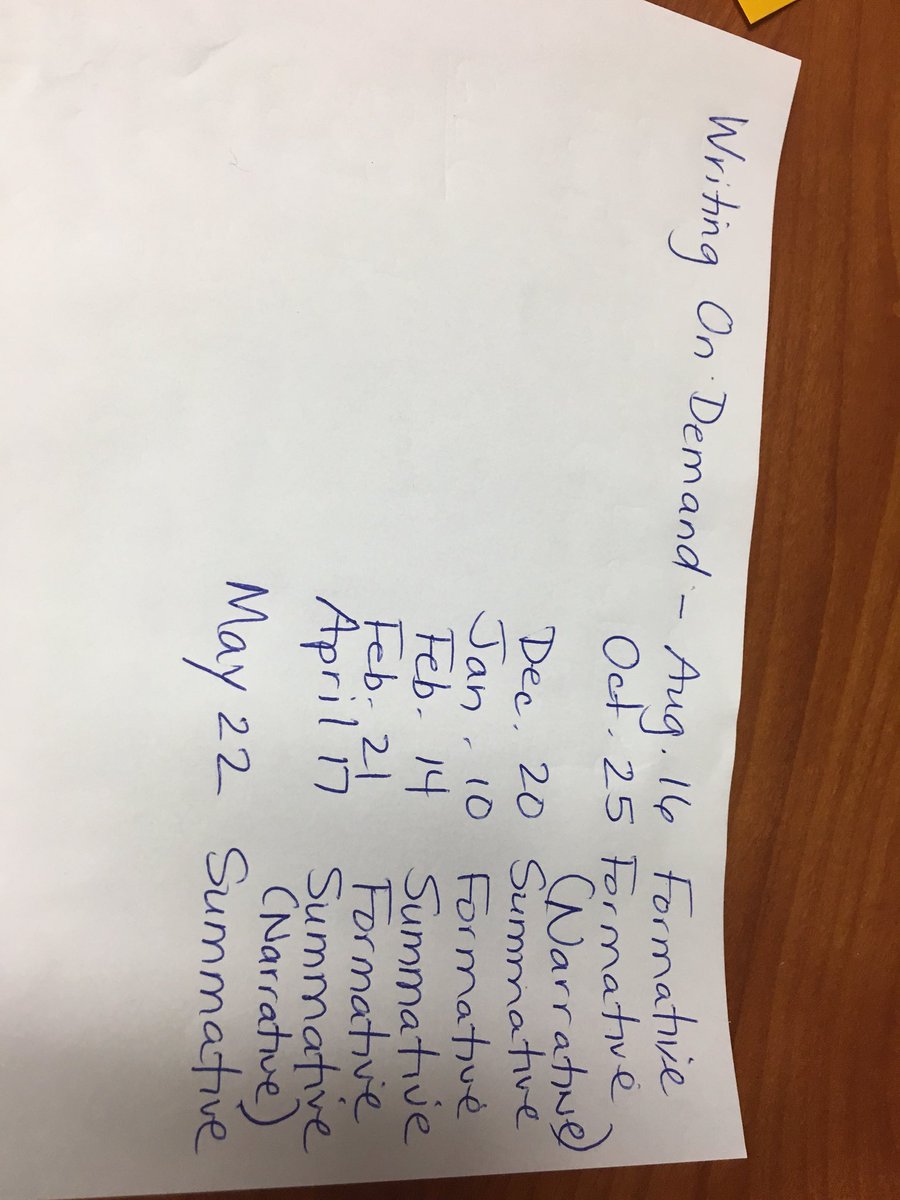 Writing On-Demand - Aug. 16 Formative
Oct. 25 Formative
(Narrative)
Dec. 20 Summative
Jan. 10 Formative
Feb. 14 Summative
Feb. 21 Formative
April 17 Summative
(Narrative)
May 22 Summative